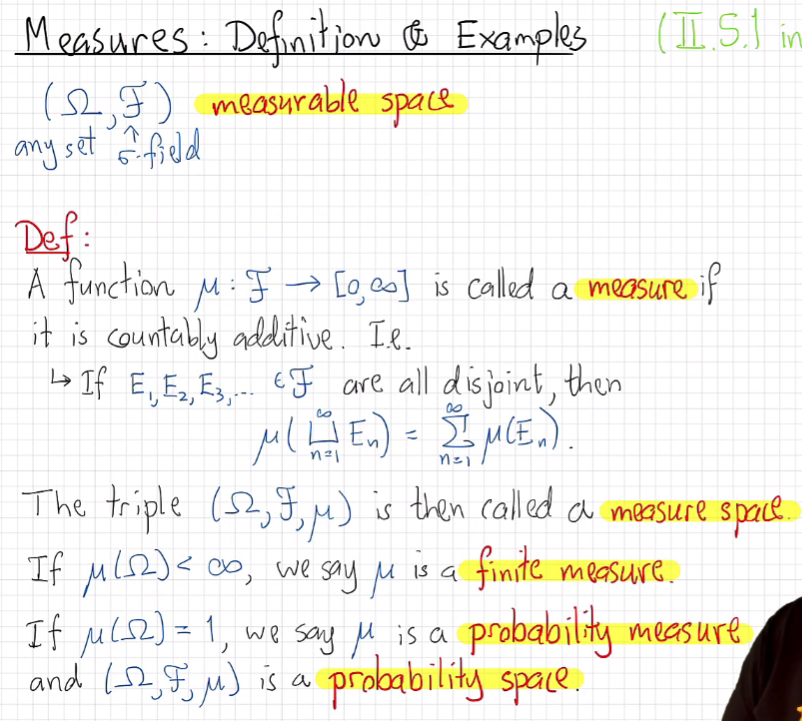 Measures: Definition & Examples (II.5.1 in
(Ω, F) measurable space
any set ↑ σ-field
Def:
A function μ: F → [0,∞] is called a measure if
it is countably additive. I.e.
↳ If E₁, E₂, E₃,... ∈ F are all disjoint, then
μ(⨆_{n=1}^{∞} Eₙ) = ∑_{n=1}^{∞} μ(Eₙ).
The triple (Ω, F, μ) is then called a measure space.
If μ(Ω) < ∞, we say μ is a finite measure.
If μ(Ω) = 1, we say μ is a probability measure
and (Ω, F, μ) is a probability space.